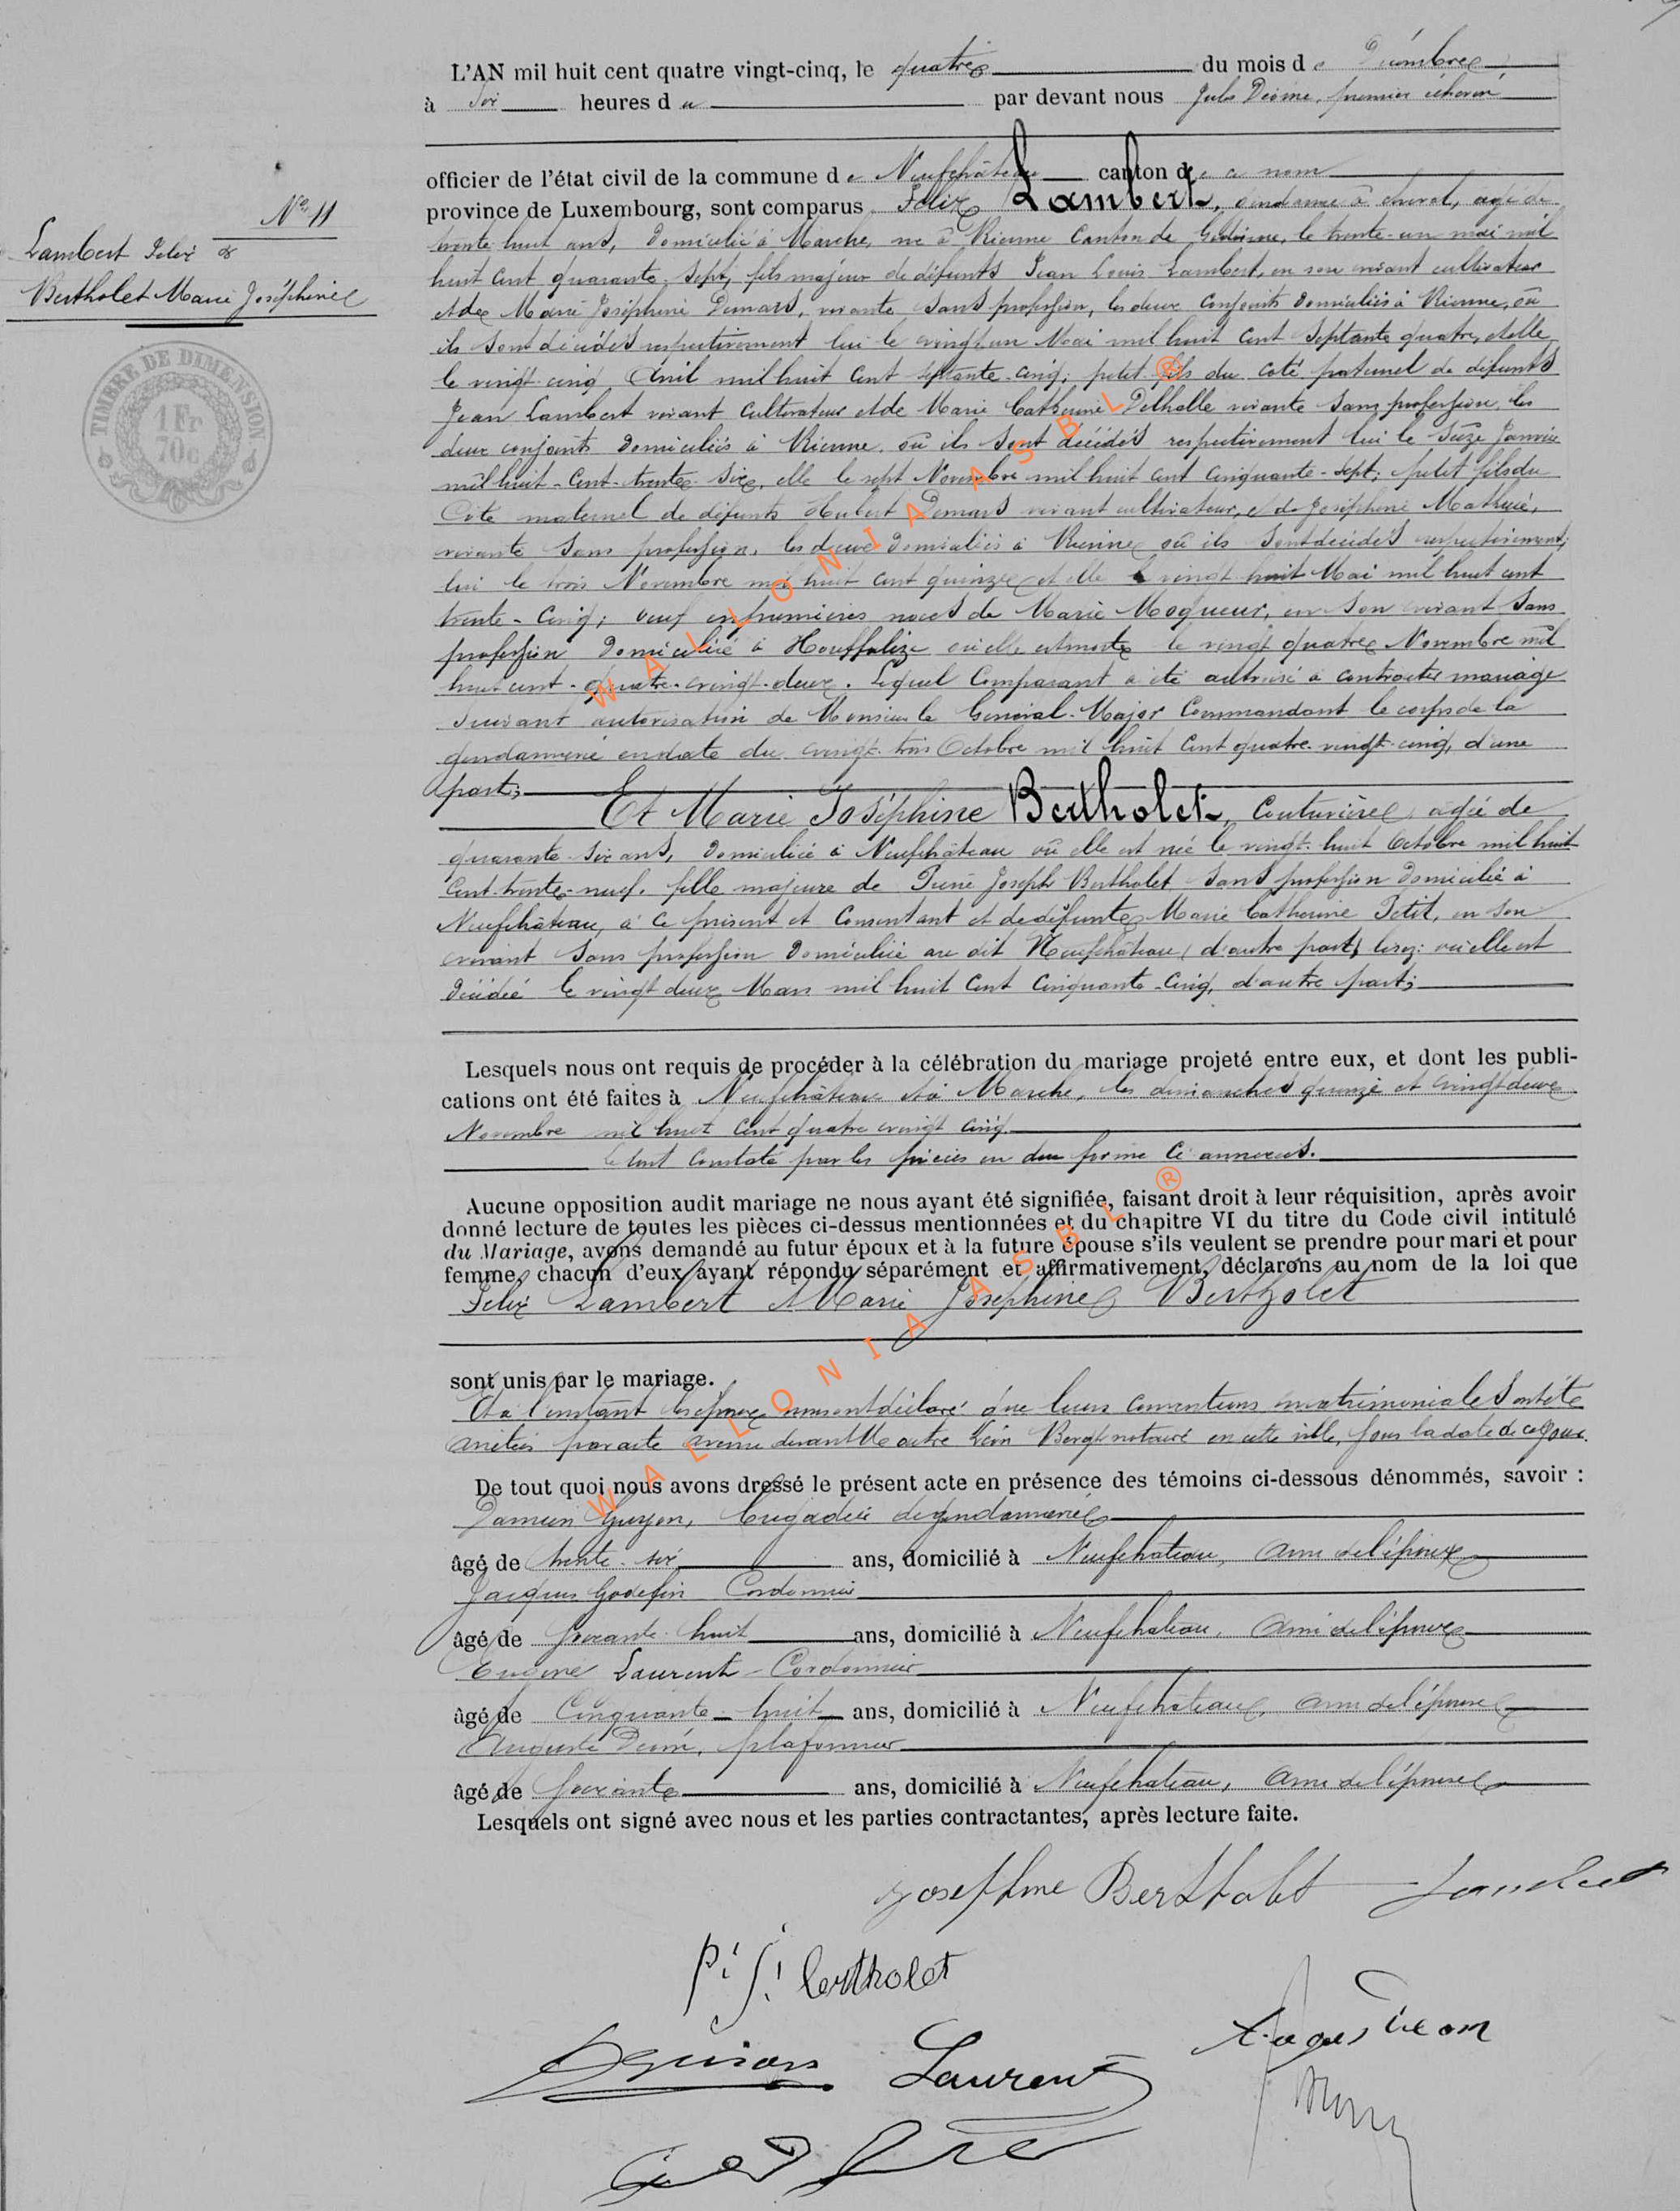 L'AN mil huit cent quatre vingt-cinq, le quatre du mois de Décembre
à six heures du par devant nous Jules premier échevin
officier de l'état civil de la commune de Neufchâteau canton de ce nom
province de Luxembourg, sont comparus Felix Lambert, gendarme à cheval, agé de
N° 11
Lambert Felix &
Bertholet Marie Joséphine
TIMBRE DE DIMENSION
1 Fr
70c
trente huit ans, domicilié à Marche, né à Rienne Canton de Gedinne, le trente-un mai mil
huit cent quarante-sept, fils majeur de défunts Jean Louis Lambert, en son vivant cultivateur
et de Marie Joséphine Demars, vivante sans profession, les deux conjoints domiciliés à Rienne, où
ils sont décédés respectivement lui le vingt un Mai mil huit cent septante quatre, et elle
le vingt-cinq Avril mil huit cent septante-cinq; petit-fils du coté paternel de défunts
Jean Lambert vivant Cultivateur et de Marie Catherine Delhalle vivante sans profession, les
deux conjoints domiciliés à Rienne où ils sont décédés respectivement lui le seize Janvier
mil huit-cent-trente six, elle le sept Novembre mil huit cent cinquante-sept; petit fils du
Côté maternel de défunts Hubert Demars vivant cultivateur, et de Joséphine
vivante sans profession, les deux domiciliés à Rienne où ils sont décédés respectivement,
lui le trois Novembre mil huit cent quinze et elle le vingt huit Mai mil huit cent
trente-cinq; veuf en premières noces de Marie Moqueur, en son vivant sans
profession domiciliée à Houffalize où elle est morte le vingt quatre Novembre mil
huit cent-quatre-vingt-deux. Lequel Comparant a été autorisé à contracter mariage
suivant autorisation de Monsieur le Général-Major Commandant le corps de la
gendarmerie en date du vingt-trois Octobre mil huit cent quatre-vingt-cinq, d'une
part;
Et Marie Joséphine Bertholet, Couturière, agée de
quarante-six ans, domiciliée à Neufchâteau où elle est née le vingt-huit Octobre mil huit
Cent-trente-neuf, fille majeure de Pierre Joseph Bertholet sans profession domicilié à
Neufchâteau, à ce présent et Consentant et de défunte Marie Catherine Petit, en son
vivant sans profession domiciliée au dit Neufchâteau, d'autre part, lisez: où elle est
décédée le vingt deux Mars mil huit cent cinquante-cinq, d'autre part;
Lesquels nous ont requis de procéder à la célébration du mariage projeté entre eux, et dont les publi-
cations ont été faites à Neufchâteau et à Marche, les dimanches quinze et vingt deux
Novembre mil huit cent quatre vingt cinq.
le tout constaté par les pièces en due forme ci annexées.
Aucune opposition audit mariage ne nous ayant été signifiée, faisant droit à leur réquisition, après avoir
donné lecture de toutes les pièces ci-dessus mentionnées et du chapitre VI du titre du Code civil intitulé
du Mariage, avons demandé au futur époux et à la future épouse s'ils veulent se prendre pour mari et pour
femme, chacun d'eux ayant répondu séparément et affirmativement, déclarons au nom de la loi que
Felix Lambert et Marie Joséphine Bertholet
sont unis par le mariage.
Et à l'instant les époux nous ont déclaré que leurs conventions matrimoniales ont été
arrêtées par acte avenu devant Maitre Léon Bergh notaire en cette ville, sous la date de ce jour.
De tout quoi nous avons dressé le présent acte en présence des témoins ci-dessous dénommés, savoir :
Damien Guyon, brigadier de gendarmerie
âgé de trente-six ans, domicilié à Neufchateau, ami de l'époux
Jacques Godefrin Cordonnier
âgé de soixante-huit ans, domicilié à Neufchateau, ami de l'époux
Eugène Laurent-Cordonnier
âgé de Cinquante-huit ans, domicilié à Neufchateau, ami de l'épouse
Auguste plafonneur
âgé de soixante ans, domicilié à Neufchateau, ami de l'épouse
Lesquels ont signé avec nous et les parties contractantes, après lecture faite.
Josephine Bertholet Lambert
P. J. bertholet
Laurent
WALLONIA ASBL ®
WALLONIA ASBL ®